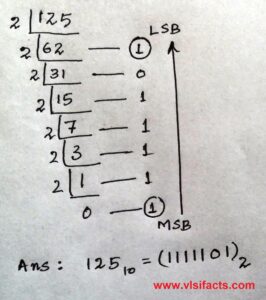 2 125 LSB
2 62 — 1
2 31 — 0
2 15 — 1
2 7 — 1
2 3 — 1
2 1 — 1
0 — 1
MSB
Ans : 125₁₀ = (1111101)₂
www.vlsifacts.com